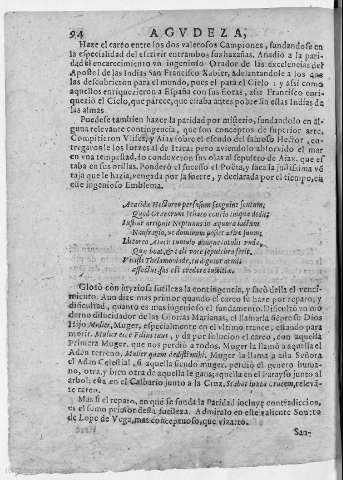 94 AGUDEZA,
Haze el careo entre los dos valerosos Campiones, fundandose en
la especialidad del escrivir entrambos sus hazañas. Añadiò a la pari-
dad el encarecimiento un ingenioso Orador de las excelencias del
Apostol de las Indias San Francisco Xabier, adelantandole a los que
las descubrieron para el mundo, pues el para el Cielo: y assi como
aquellos enriquecieron a España con sus flotas, assi Francisco enri-
quezió el Cielo, que parece, que estaba antes pobre sin estas Indias de
las almas.
Puedese tambien hazer la paridad por misterio, fundandolo en al-
guna relevante contingencia, que son conceptos de superior arte.
Compitieron Vlises, y Aiax sobre el escudo del famoso Hector, en-
tregaronle los Iuezes al de Itaca; pero aviendolo absorvido el mar
en vna tempestad, lo conduxeron sus olas al sepulcro de Aiax, que es-
taba en sus orillas. Ponderò el sucesso el Poëta, y saca la justissima vē
taja que le hazia, vengada por la suerte, y declarada por el tiempo, en
este ingenioso Emblema.
Aeacidæ Hectoreo perfusum sanguine scutum,
Quod Græcorum Ithaco concio iniqua dedit;
Iustior arripuit Neptunus in æquora iactum
Naufragio, ut dominum posset adire suum;
Littoreo Aiacis tumulo namque intulit vnda,
Quæ boat, & tali voce sepulcra ferit.
Vicisti Thelamoniade, tu dignior armis
affectus fas est credere iustitia.
Glosò con juyziosa sutileza la contingencia, y sacò della el venci-
miento. Aun dize mas primor quando el careo se haze por reparo, y
dificultad, quanto es mas ingenioso el fundamento. Dificultò vn mo-
derno dilucidador de las Glorias Marianas, el llamarla siēpre su Dios
Hijo, Mulier, Muger, especialmente en el vltimo trance, estando para
morir. Mulier ecce Filius tuus, y dà por solucion el careo, con aquella
Primera Muger, que nos perdiò a todos. Muger la llamò a aquella el
Adan terreno, Mulier quam dedisti mihi. Muger la llama a esta Señora
el Adan Celestial, si aquella siendo muger, perdiò el genero huma-
no, otra, y bien otra de aquella le gana; aquella en el Parayso junto al
arbol; esta en el Calbario junto a la Cruz. Stabat iuxta crucem, relevā-
te careo.
Mas si el reparo, en que se funda la Paridad incluye contradiccion,
es el sumo primor desta sutileza. Admiralo en este valiente Soneto
de Lope de Vega, mas conceptuoso, que vizarro.